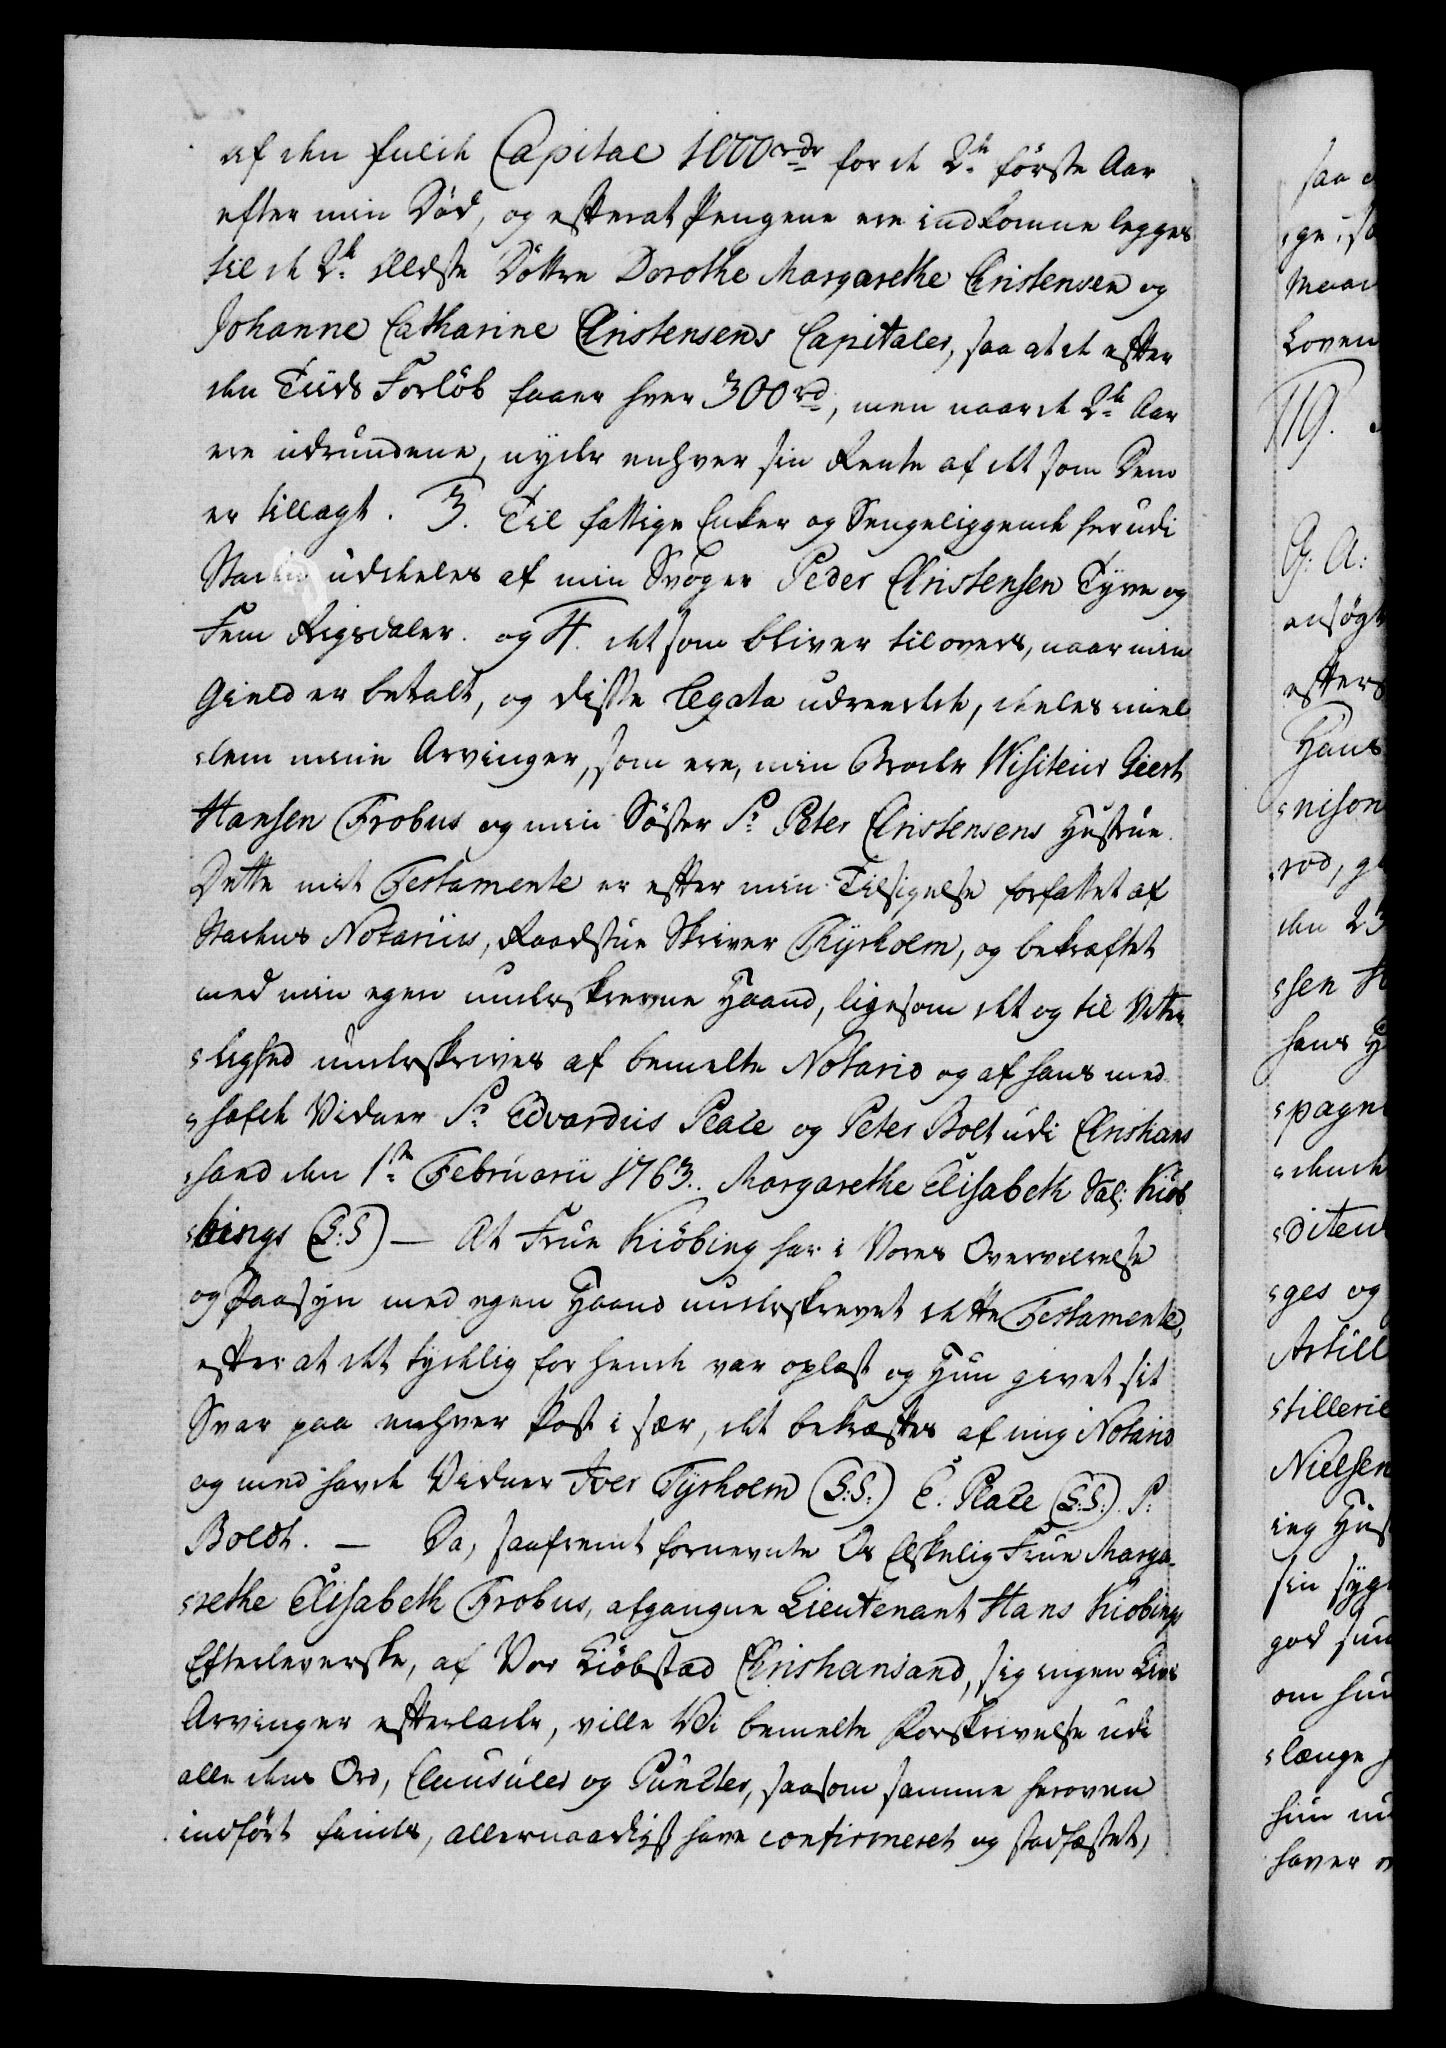 af den fulde Capital 1000 rdr for de 2de förste Aar
efter min Död, og efterat Pengene ere indkomne legges
til de 2de Eldste Döttre Dorothe Margarethe Christensen og
Johanne Catharine Christensens Capitaler, saa at de efter
den Tiids Forlöb faaer hver 300 rd, men naar de 2de Aar
ere udrundene, nyder enhver sin Rente af det som Dem
er tillagt. 3. Til fattige Enker og Sengeliggende her udi
Staden uddeeles af min Svoger Peder Christensen Tyve og
Fem Rigsdaler. og 4. det som bliver tilovers, naar min
Gield er betalt, og disse Legata udreedede, deeles imel
-lem mine Arvinger, som ere, min Broder Wisiteur Geert
Hansen Frobus og min Söster Sr Peter Christensens Hustrue.
Dette mit Testamente er efter min Tilsigelse forfattet af
Stadens Notarius, Raadstue Skriver Thyrholm, og bekraftet
med min egen underskrevne Haand, ligesom det og til Vitter
-lighed underskrives af bemelte Notario og af hans med
-hafde Vidner Sr Edvardus Place og Peter Bolt udi Christians
-sand den 1te Februarii 1763. Margarethe Elisabeth Sal: Kiöb
-bings (L:S) — At Frue Kiöbing har i Vores Overværelse
og Paasyn med egen Haand underskrevet dette Testamente,
efter at det tydelig for hende var oplæst og Hun givet sit
Svar paa enhver Post i sær, det bekræftes af mig Notario
og med havde Vidner Iver Tyrholm (L:S:) E. Place (L:S:) P:
Boldt. — Da, saafremt fornevnte Os Elskelig Frue Marga-
-rethe Elisabeth Frobus, afgangne Lieutenant Hans Kiobings
Efterleverske, af Vor Kiöbstad Christiansand, sig ingen Livs
Arvinger efterlader, ville Vi bemelte Forskrivelse udi
alle dens Ord, Clausuler og Puncter, saasom samme heroven
indfört findes, allernaadigst have confirmeret og stadfæstet,